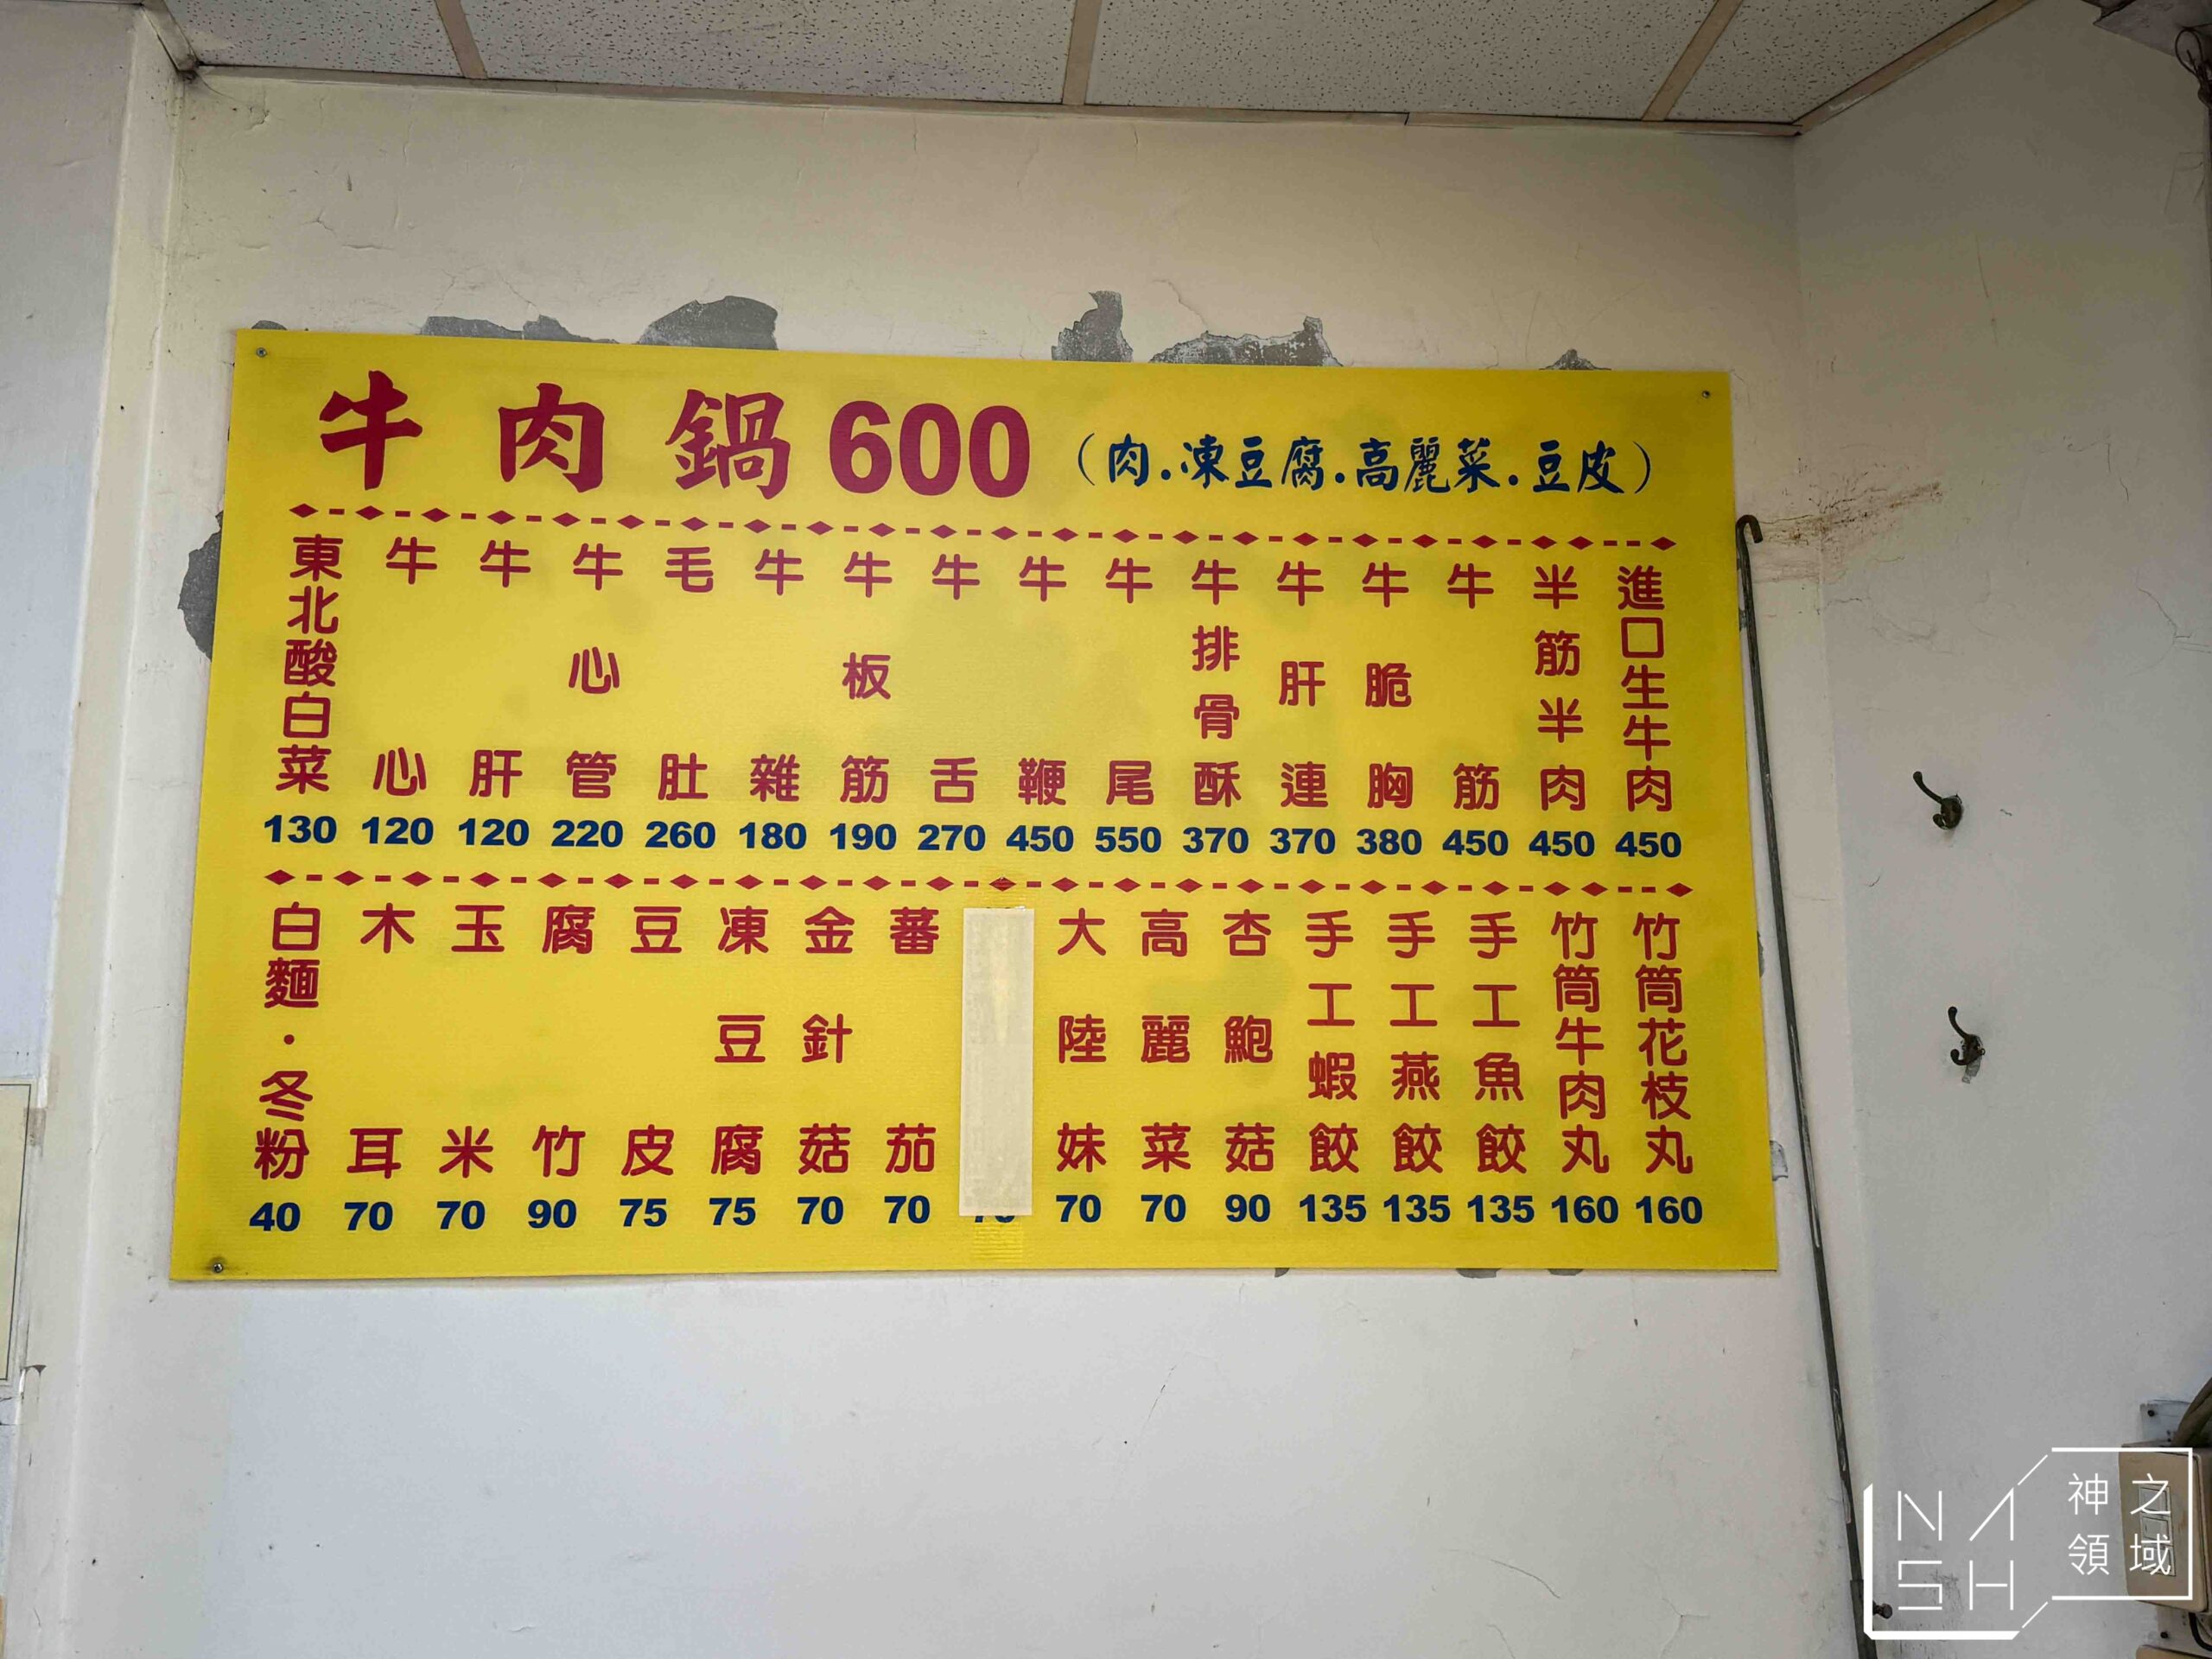 牛肉鍋600（肉.凍豆腐.高麗菜.豆皮）
進口生牛肉 450
半筋半肉 450
牛筋 450
牛脆胸 380
牛肝連 370
牛排骨酥 370
牛尾 550
牛鞭 450
牛舌 270
牛板筋 190
牛雜 180
毛肚 260
牛心管 220
牛肝 120
牛心 120
東北酸白菜 130
竹筒花枝丸 160
竹筒牛肉丸 160
手工魚餃 135
手工燕餃 135
手工蝦餃 135
杏鮑菇 90
高麗菜 70
大陸妹 70
蕃茄 70
金針菇 70
凍豆腐 75
豆皮 75
腐竹 90
玉米 70
木耳 70
白麵・冬粉 40
NASH
神之領域